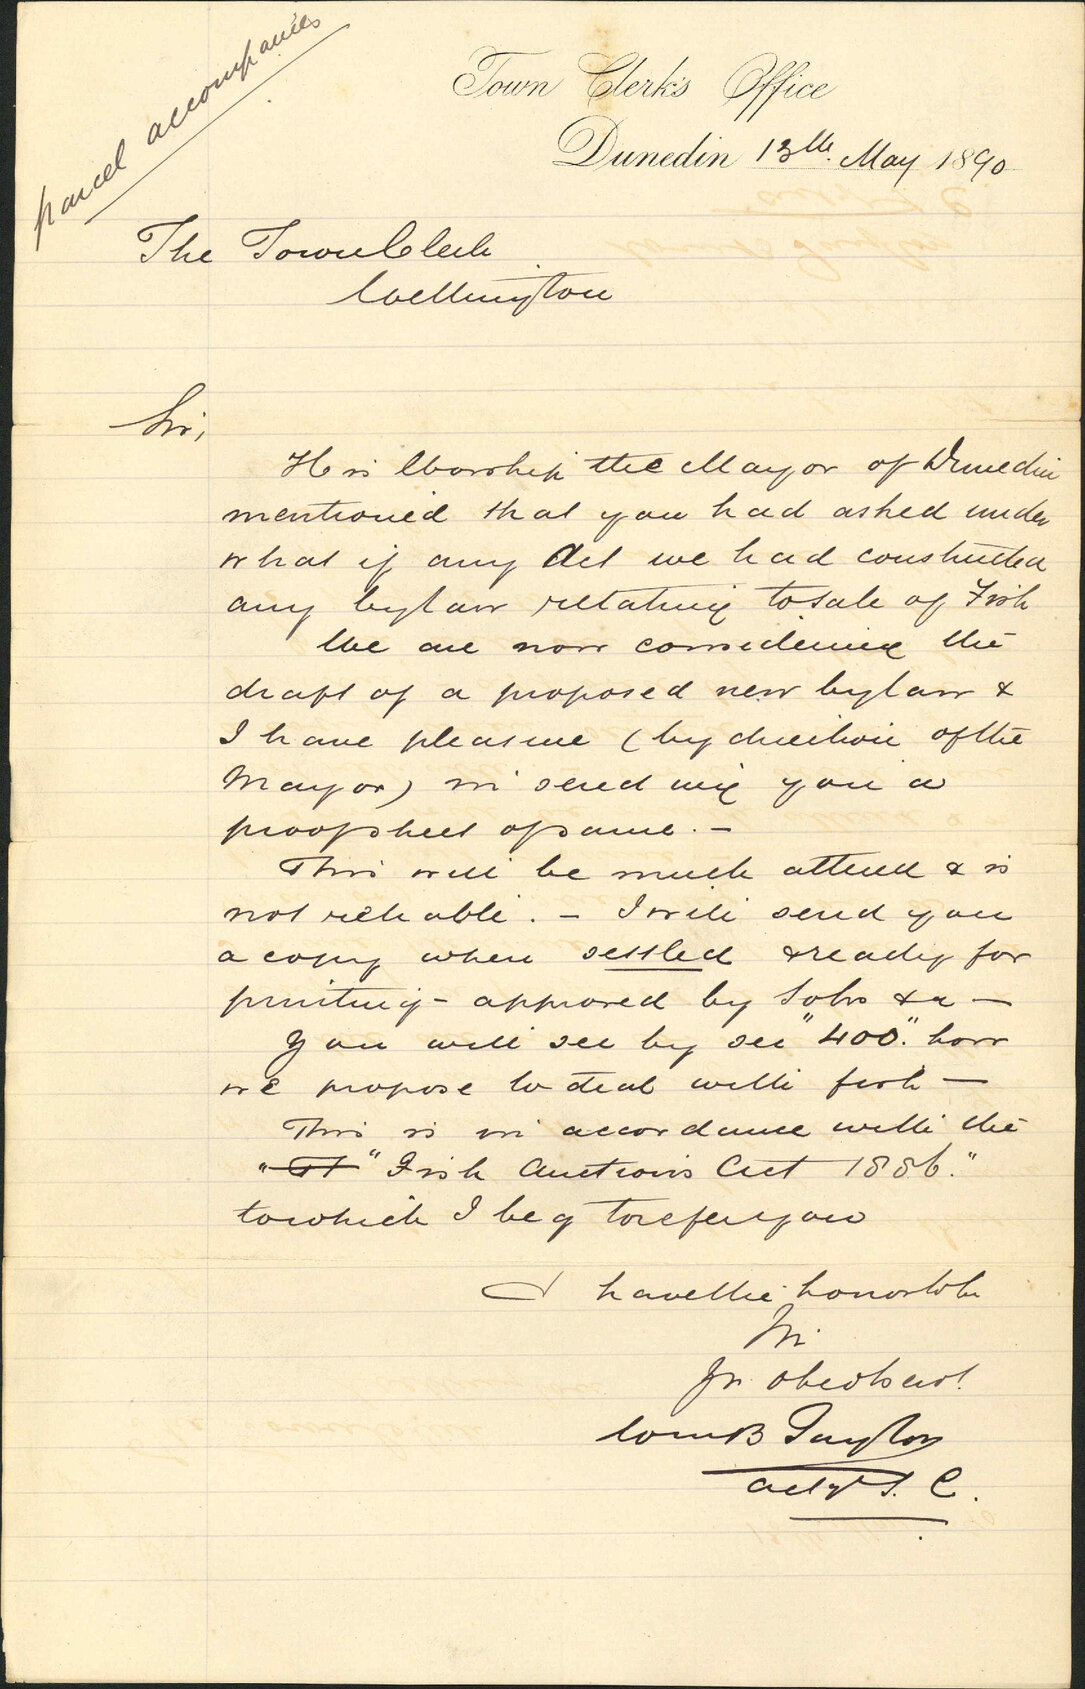 parcel accompanies
Town Clerk's Office
Dunedin 13th. May 1890
The Town Clerk
Wellington
Sir,
His Worship the Mayor of Dunedin
mentioned that you had asked under
what if any Act we had constructed
any bylaw relating to sale of Fish
We are now considering the
draft of a proposed new bylaw &
I have pleasure (by direction of the
Mayor) in sending you a
proofsheet of same. —
This will be much altered & is
not reliable. — I will send you
a copy when settled & ready for
printing — approved by Solrs &c —
You will see by sec "400." how
we propose to deal with fish —
This is in accordance with the
" "Fish Auctions Act 1886."
to which I beg to refer you
I have the honor to be
Sir
Yr. obed servt.
Wm B Taylor
actg T. C.